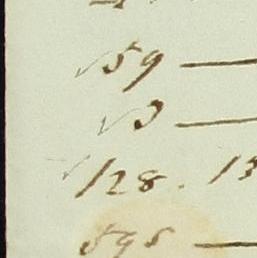 √59 —
√3 —
√128. 13
595 —